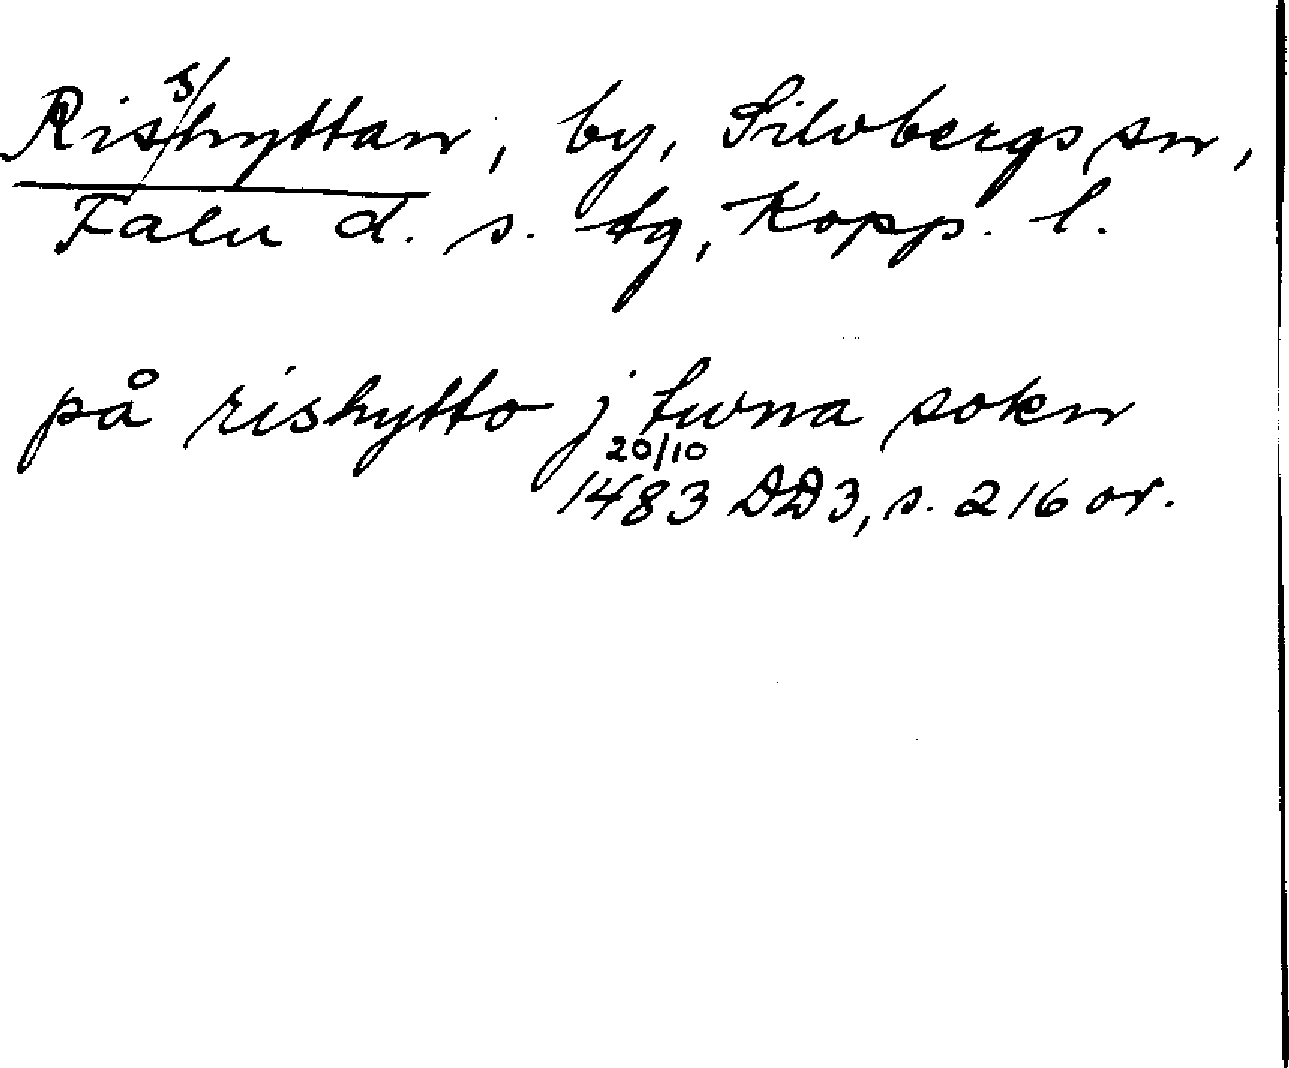 Risshyttan, by, Silvbergs sn,
Falu d. s. tg, Kopp. l.
på rishytto j twna sokn
20/10
1483 DD3, s. 216 or.